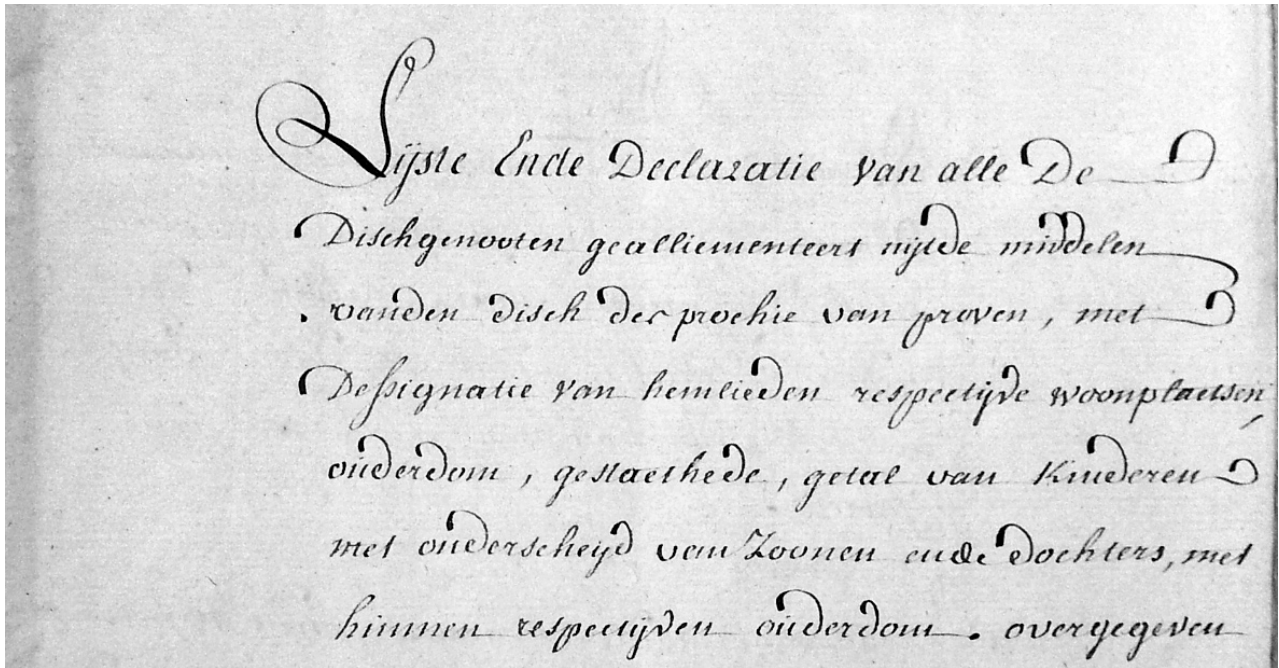 Lijste Ende Declaratie van alle De
Dischgenooten gealliementeert uijtde middelen
vanden disch der prochie van proven, met
Dessignatie van hemlieden respectijve woonplaetsen,
ouderdom, gestaethede, getal van Kinderen
met onderscheijd van Zoonen ende dochters, met
hunnen respectijven ouderdom. overgegeven